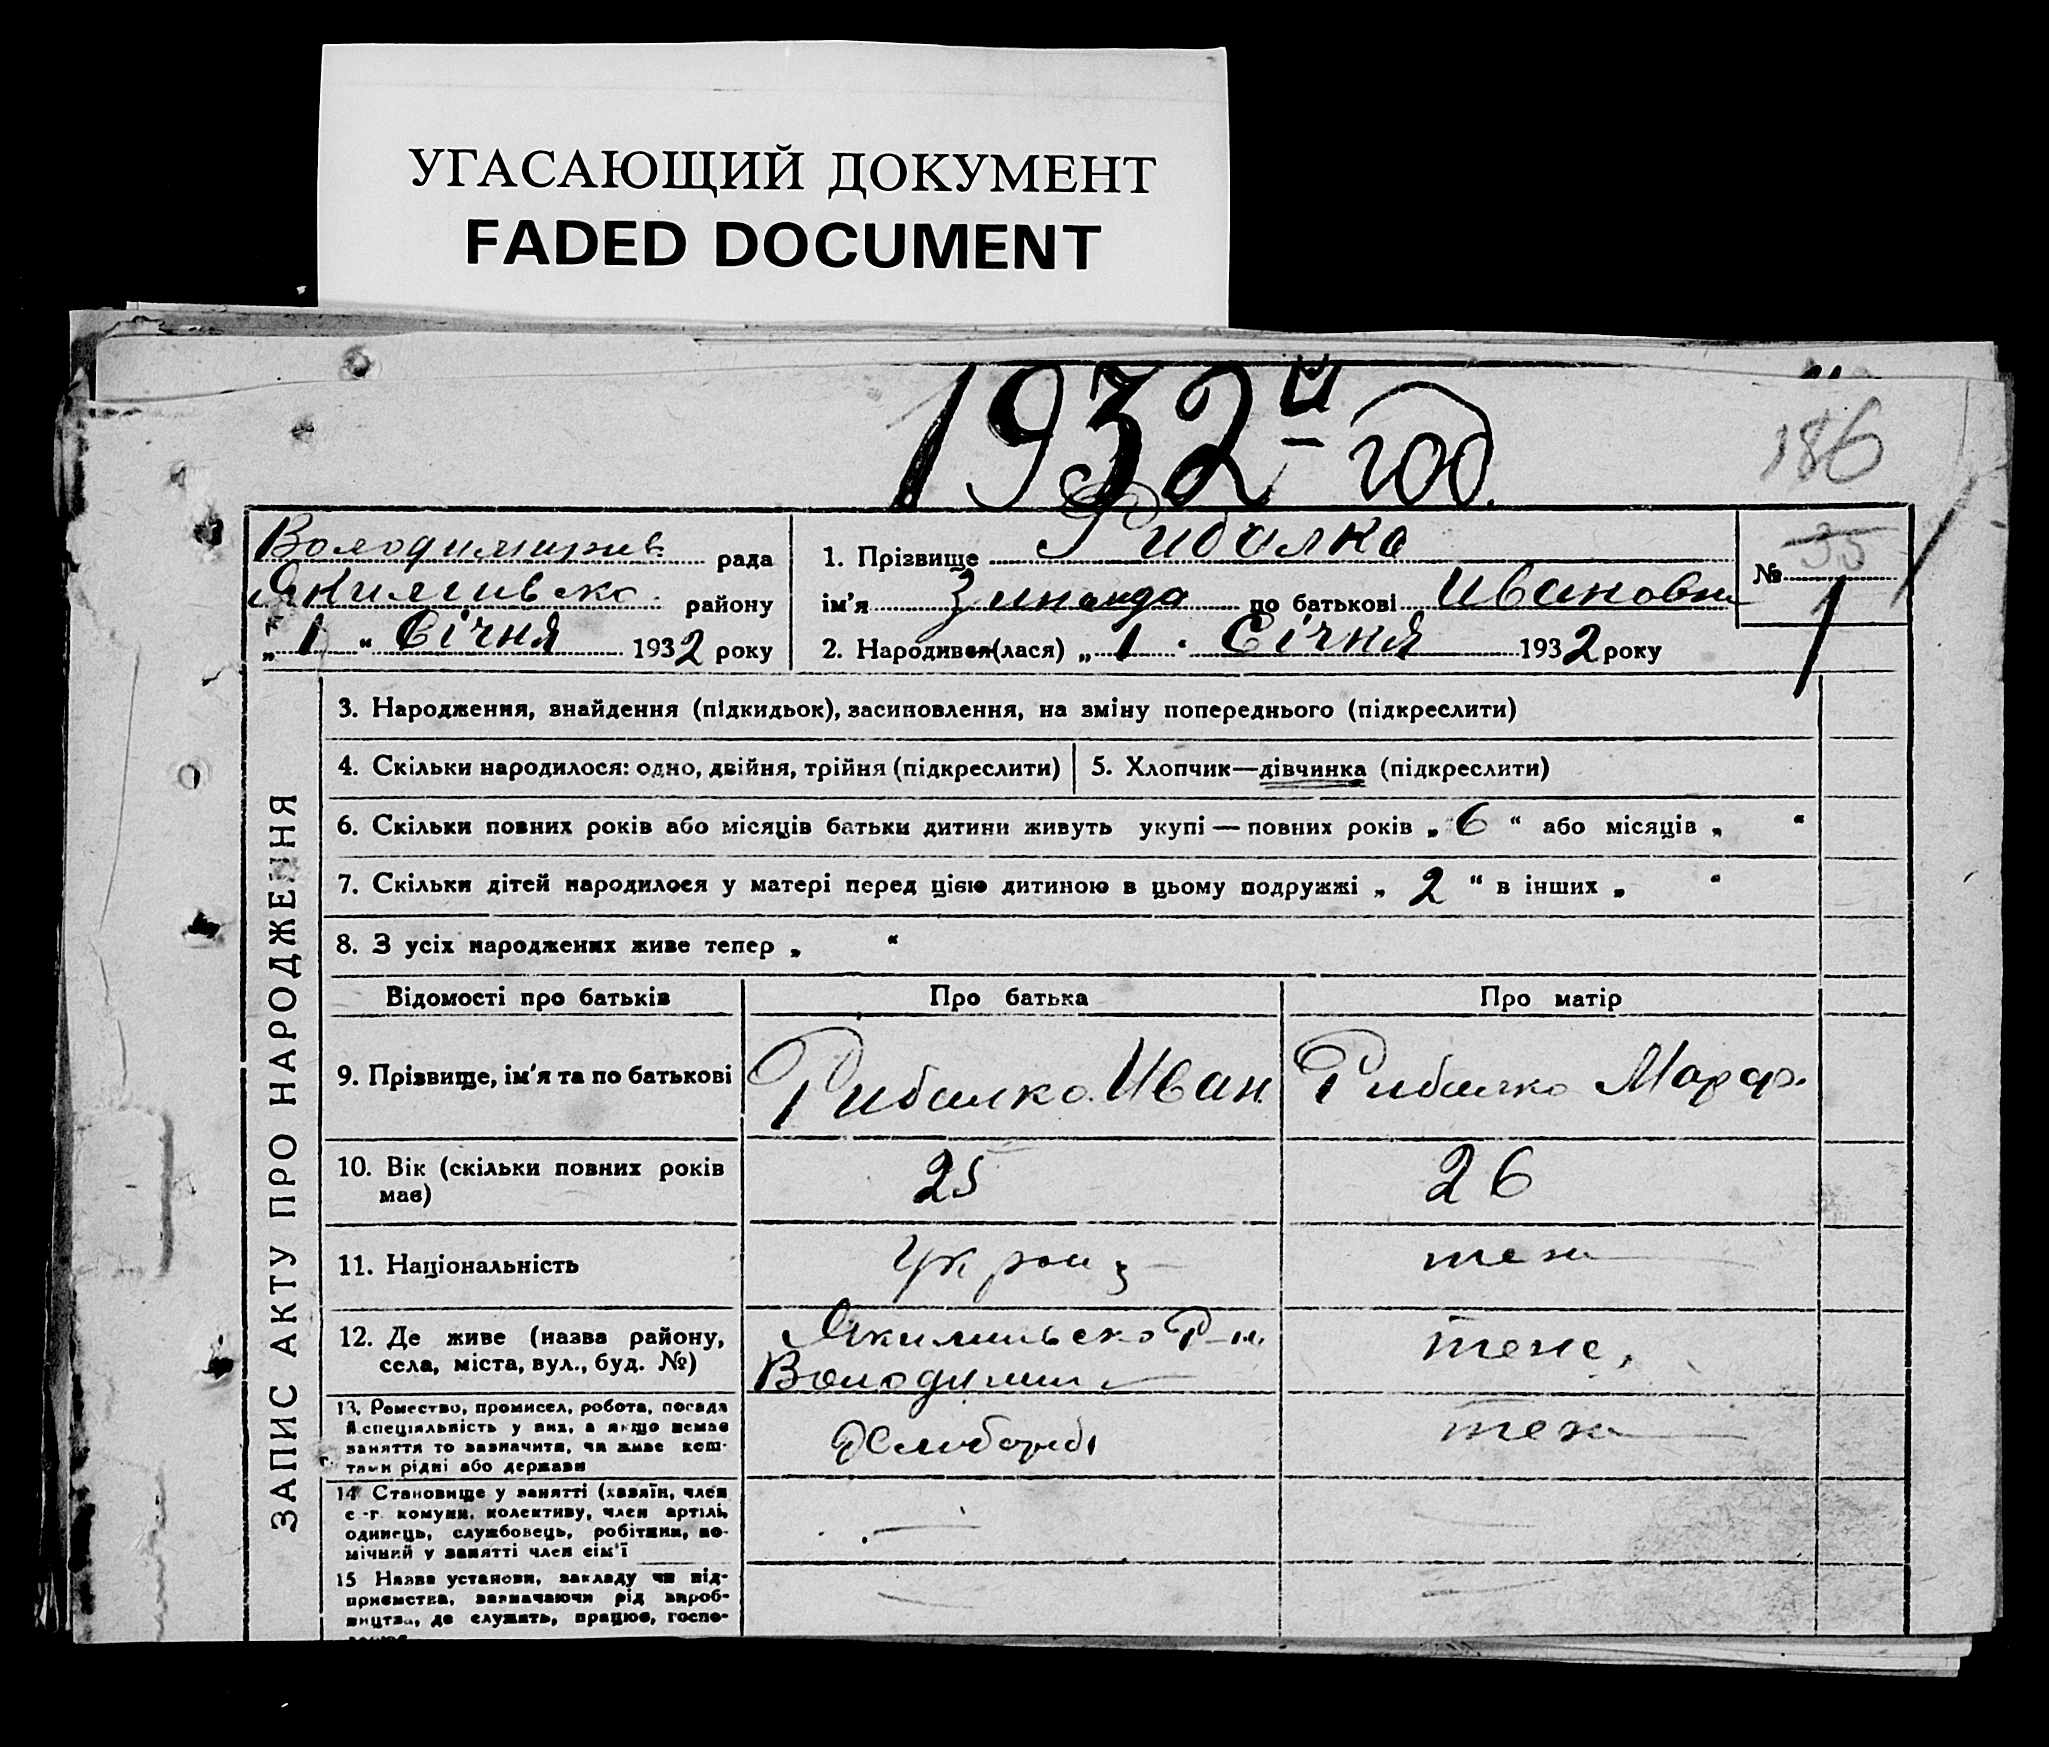 УГАСАЮЩИЙ ДОКУМЕНТ
FADED DOCUMENT
1932й год.
186
Володимирив рада
Якимивско району
„ 1 “ Січня 1932 року
1. Прізвище Рибалка
ім'я Зинаида по батькові Ивановна
2. Народився(лася) „ 1 “ Січня 1932 року
№ 35
1
ЗАПИС АКТУ ПРО НАРОДЖЕННЯ
3. Народження, знайдення (підкидьок), засиновлення, на зміну попереднього (підкреслити)
4. Скільки народилося: одно, двійня, трійня (підкреслити)
5. Хлопчик—дівчинка (підкреслити)
6. Скільки повних років або місяців батьки дитини живуть укупі — повних років „ 6 “ або місяців „ “
7. Скільки дітей народилося у матері перед цією дитиною в цьому подружжі „ 2 “ в інших „ “
8. З усіх народжених живе тепер „ “
Відомості про батьків
Про батька
Про матір
9. Прізвище, ім'я та по батькові
Рибалка Иван
Рибалко Марф.
10. Вік (скільки повних років
має)
25
26
11. Національність
Україз
теж
12. Де живе (назва району,
села, міста, вул., буд. №)
Якимивско Р-н.
Володими
теже,
13. Ремество, промисел, робота, посада
й спеціяльність у них, а якщо немає
заняття то зазначити, чи живе кош-
тами рідні або держави
теж
14 Становище у занятті (хазяїн, член
с.-г. комуни, колективу, член артілі,
одинець, службовець, робітник, по-
мічний у занятті член сім'ї
15 Назва установи, закладу чи під-
приємства, зазначаючи рід вироб-
ництва, де служить, працює, госпо-